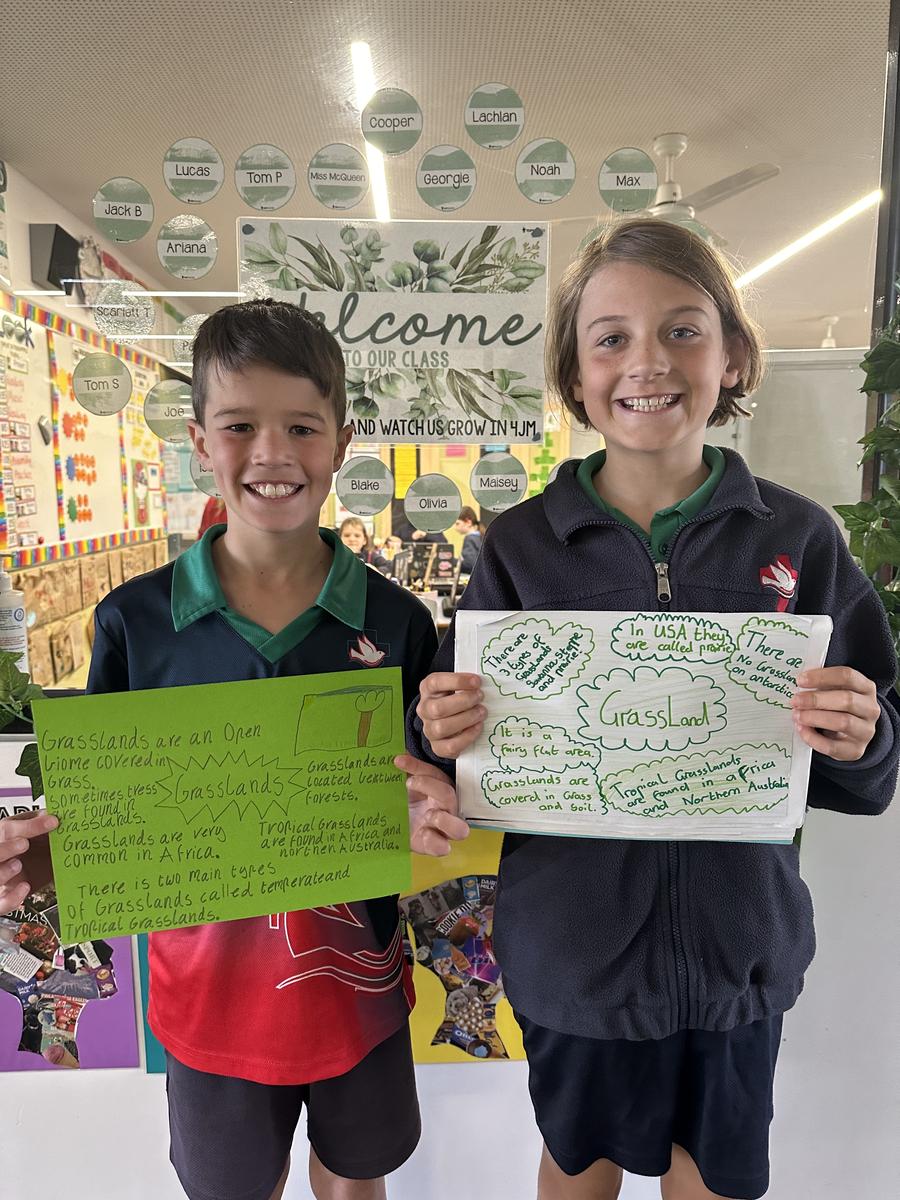 Cooper
Lachlan
Lucas
Tom P
Miss McQueen
Georgie
Noah
Max
Jack B
Ariana
Scarlett T
Tom S
Joe
Welcome
TO OUR CLASS
AND WATCH US GROW IN 4JM
Blake
Olivia
Maisey
Grasslands are an Open
biome covered in
Grass.
sometimes tress
are found in
Grasslands.
Grasslands
Grasslands are
Located between
forests.
Grasslands are very
common in Africa.
Tropical Grasslands
are found in Africa and
northen Australia.
There is two main types
of Grasslands called temperate and
Tropical Grasslands.
There are
3 types of
Grassland
Savanna, steppe
and prairie
In USA they
are called prairie
There are
No Grassland
on antarctica
GrassLand
It is a
fairy flat area
Grasslands are
coverd in Grass
and soil.
Tropical Grasslands
are found in africa
and Northern Australia